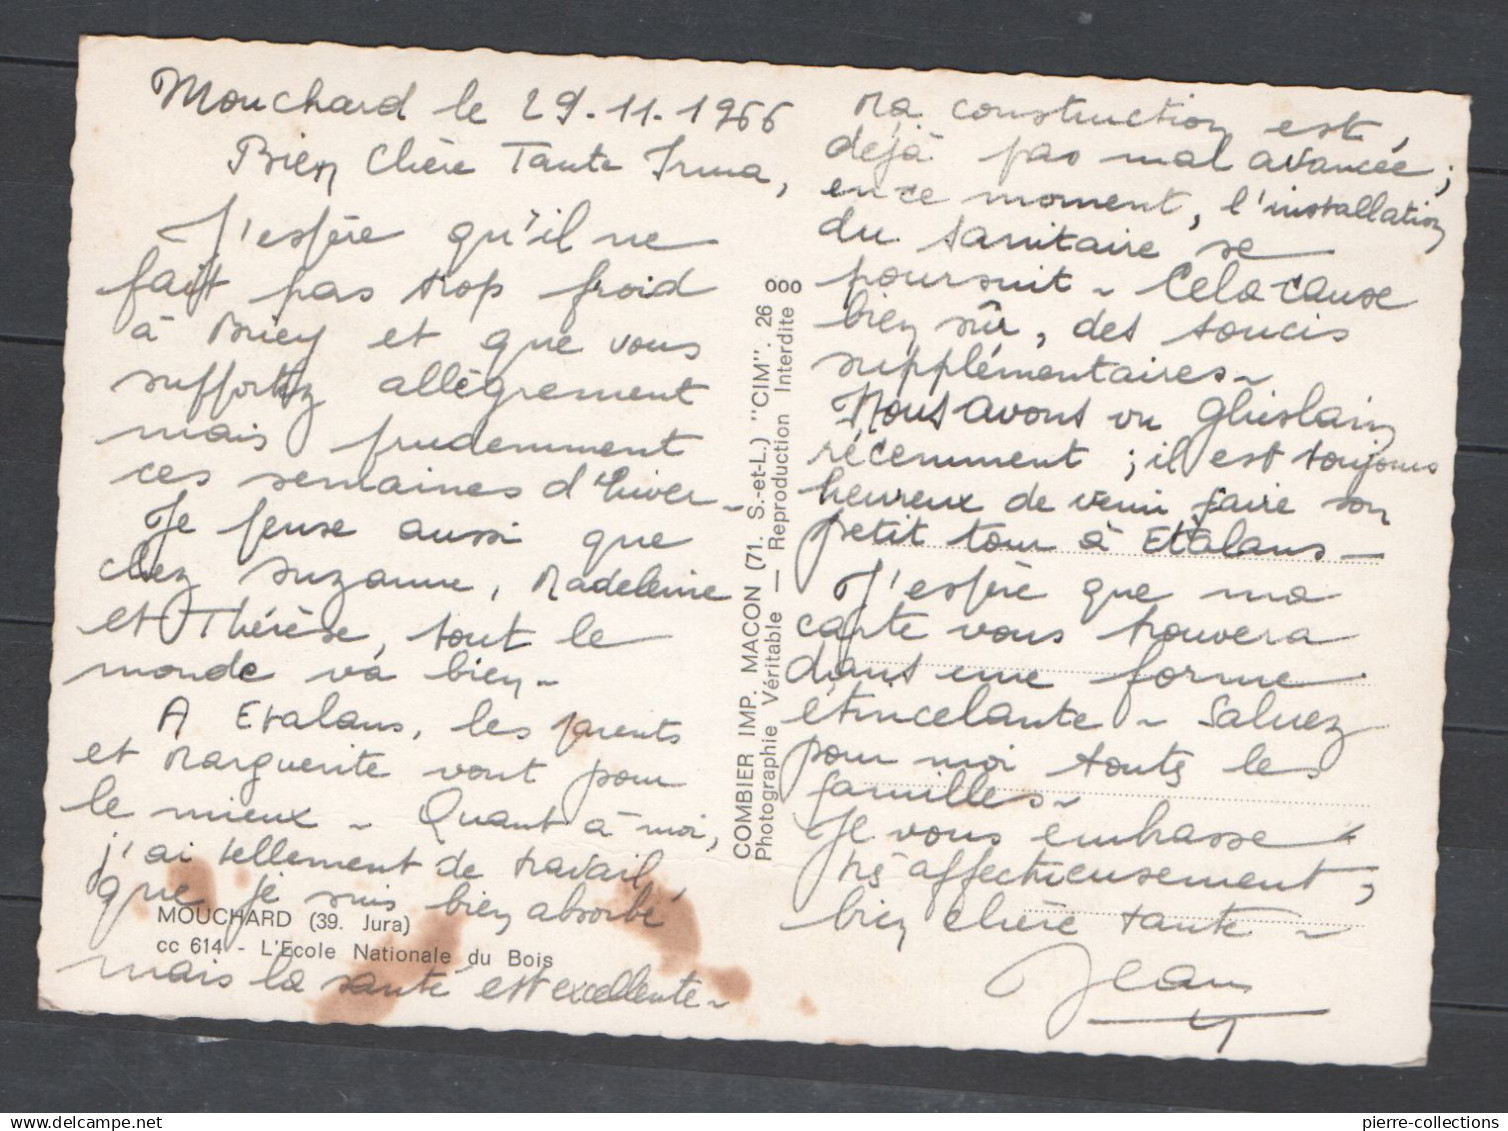 Mouchard le 29-11-1966
Bien Chère Tante Irma,
J'espère qu'il ne
fait pas trop froid
à Briey et que vous
supportez allègrement
mais prudemment
ces semaines d'hiver -
Je pense aussi que
chez Suzanne, Madeleine
et Thérèse, tout le
monde va bien -
A Etalans, les parents
et Marguerite vont pour
le mieux - Quant à moi,
j'ai tellement de travail
que je suis bien absorbé
MOUCHARD (39. Jura)
cc 614 - L'Ecole Nationale du Bois
mais la santé est excellente -
COMBIER IMP. MACON (71. S.-et-L.) "CIM". 26 000
Photographie Véritable — Reproduction Interdite
Ma construction est
déjà pas mal avancée ;
en ce moment, l'installation
du sanitaire se
poursuit - Cela cause
bien sûr, des soucis
supplémentaires -
Nous avons vu Ghislain
récemment ; il est toujours
heureux de venir faire son
petit tour à Etalans -
J'espère que ma
carte vous trouvera
dans une forme
étincelante - Saluez
pour moi toutes les
familles -
Je vous embrasse
trs affectueusement,
bien chère tante -
Jean
pierre-collections